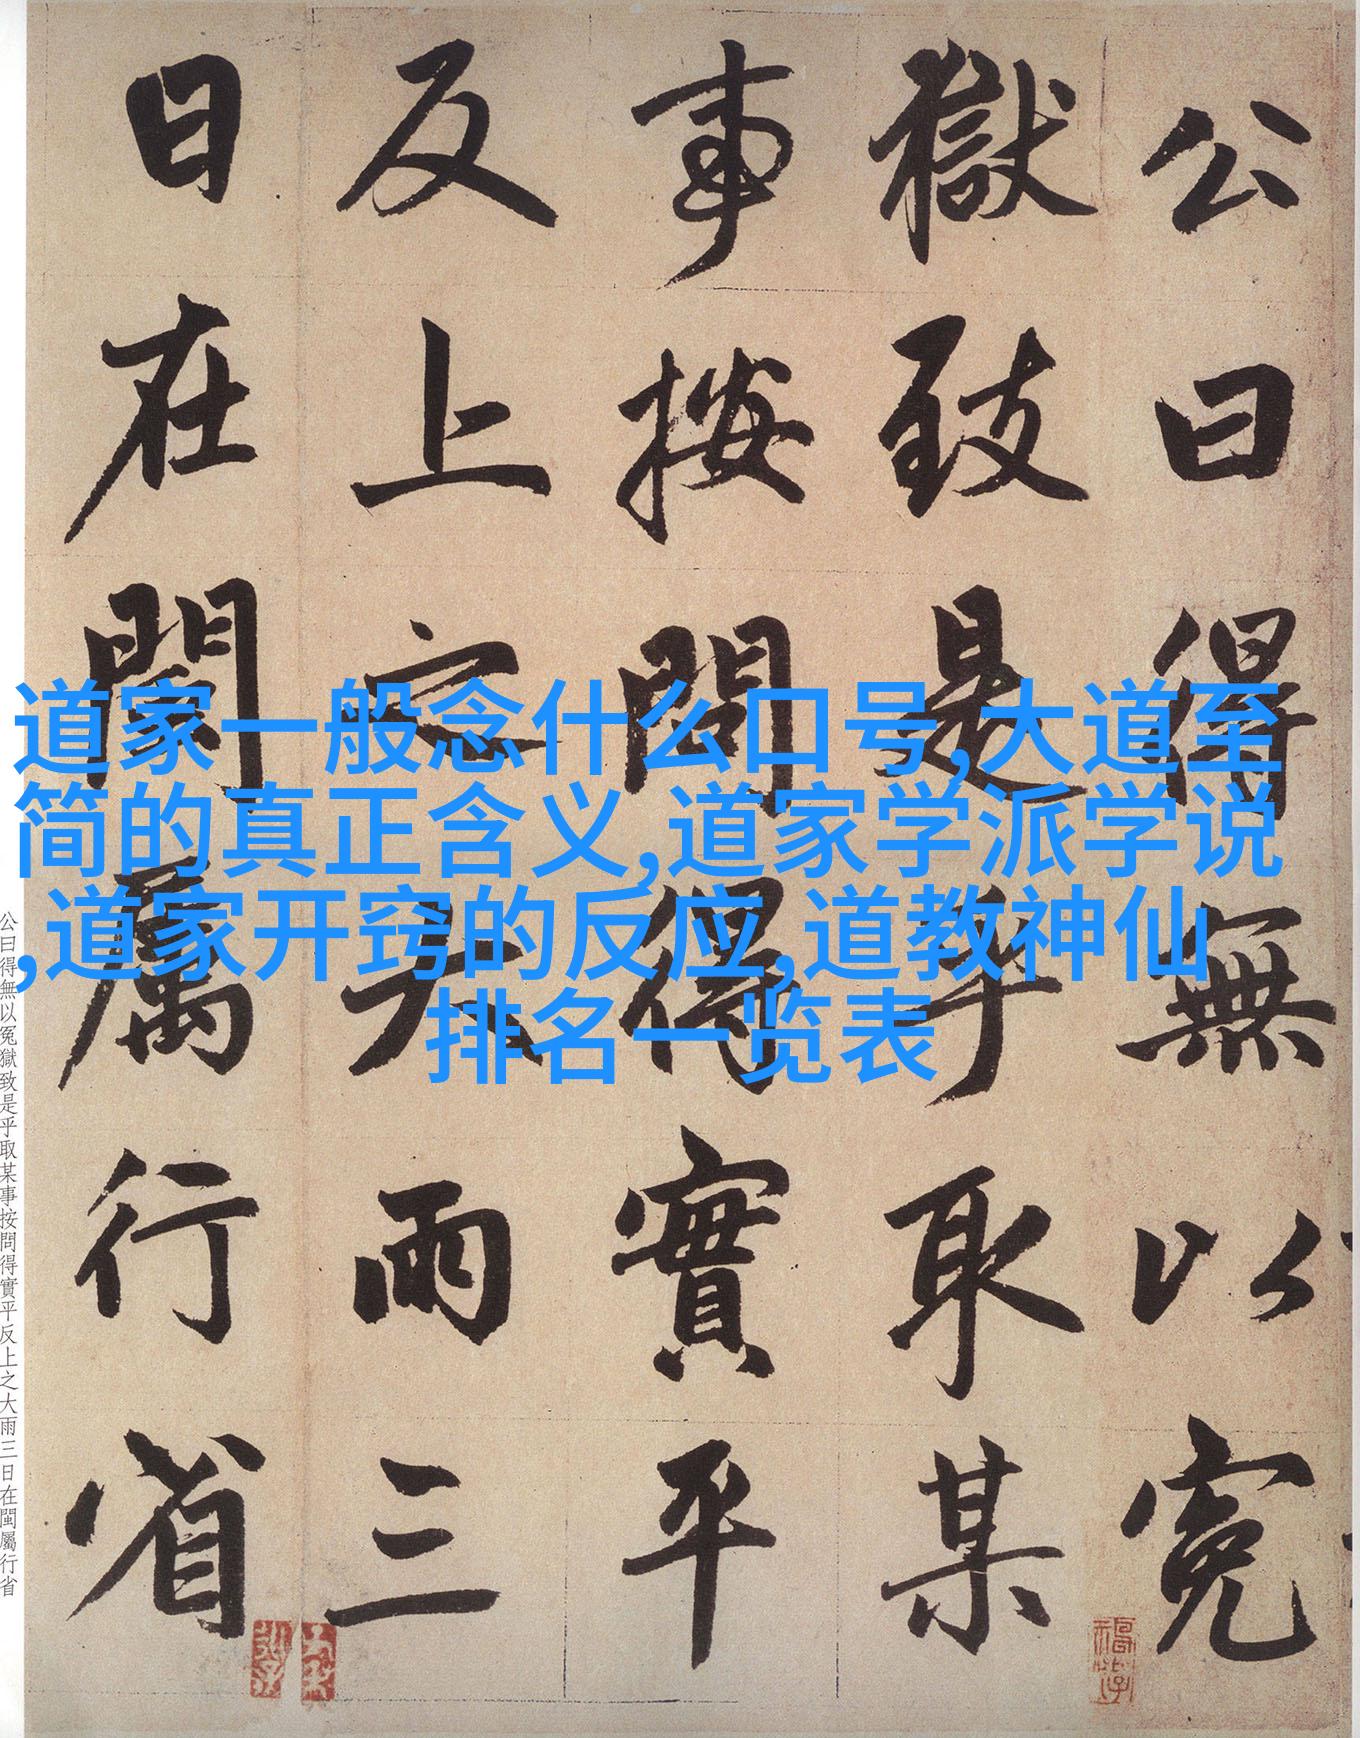 公曰得無以冤
獄致是乎取某
事按問得實平
反上之大雨三
日在閩屬行省
道家一般念什么口号,大道至
简的真正含义,道家学派学说
,道家开窍的反应,道教神仙
排名一览表
公曰得無以冤獄致是乎取某事按問得實平反上之大雨三日在閩屬行省